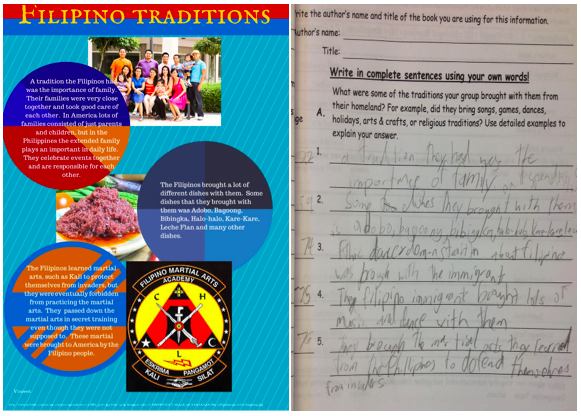 FILIPINO TRADITIONS
A tradition the Filipinos ha
was the importance of family.
Their families were very close
together and took good care of
each other. In America lots of
families consisted of just parents
and children, but in the
Philippines the extended family
plays an important in daily life.
They celebrate events together
and are responsible for each
other.
The Filipinos brought a lot of
different dishes with them. Some
dishes that they brought with
them was Adobo, Bagoong,
Bibingka, Halo-halo, Kare-Kare,
Leche Flan and many other
dishes.
The Filipinos learned martial
arts, such as Kali to protect
themselves from invaders, but
they were eventually forbidden
from practicing the martial
arts. They passed down the
martial arts in secret training
even though they were not
supposed to. These martial
were brought to America by the
Filipino people.
FILIPINO MARTIAL ARTS
ACADEMY
C H
L C
ESKRIMA PANGAMOT
KALI SILAT
rite the author's name and title of the book you are using for this information.
uthor's name:
Title:
Write in complete sentences using your own words!
What were some of the traditions your group brought with them from
A. their homeland? For example, did they bring songs, games, dances,
holidays, arts & crafts, or religious traditions? Use detailed examples to
explain your answer.
ge
1. A tradition they had was the
importance of family
2. Some dishes they brought with them
adobo, bagoong, bibingka, halo-halo, kare-kare
74 3. about filipine
was with the immigrant
75 4. They filipino immigrant brought lots of
music and dance with them
5. They brough the martial arts they learned
from the Philipines to defend themselves
from invaders